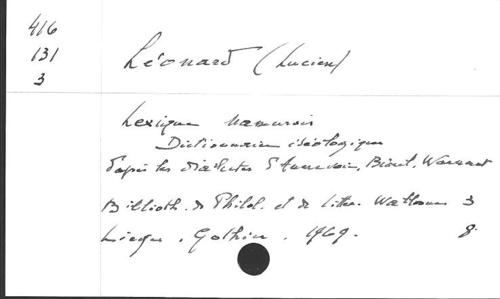 416
131
3
Léonard (Lucien)
Lexique namurois
Dictionnaire idéologique
d'après les dialectes d'Annevoie, Bioul, Warnant
Biblioth. de Philol. et de Litter. Wallonnes 3
Liège. Gothier. 1969. 8.